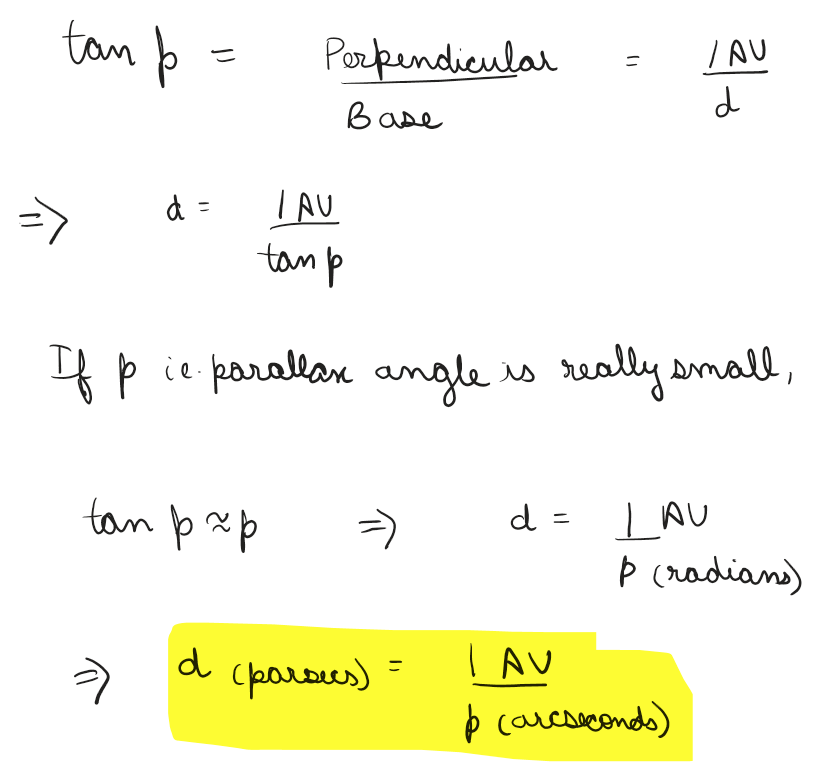 tan p = Perpendicular / Base = 1 AU / d
⇒ d = 1 AU / tan p
If p i.e. parallax angle is really small,
tan p ≈ p ⇒ d = 1 AU / p (radians)
⇒ d (parsecs) = 1 AU / p (arcseconds)